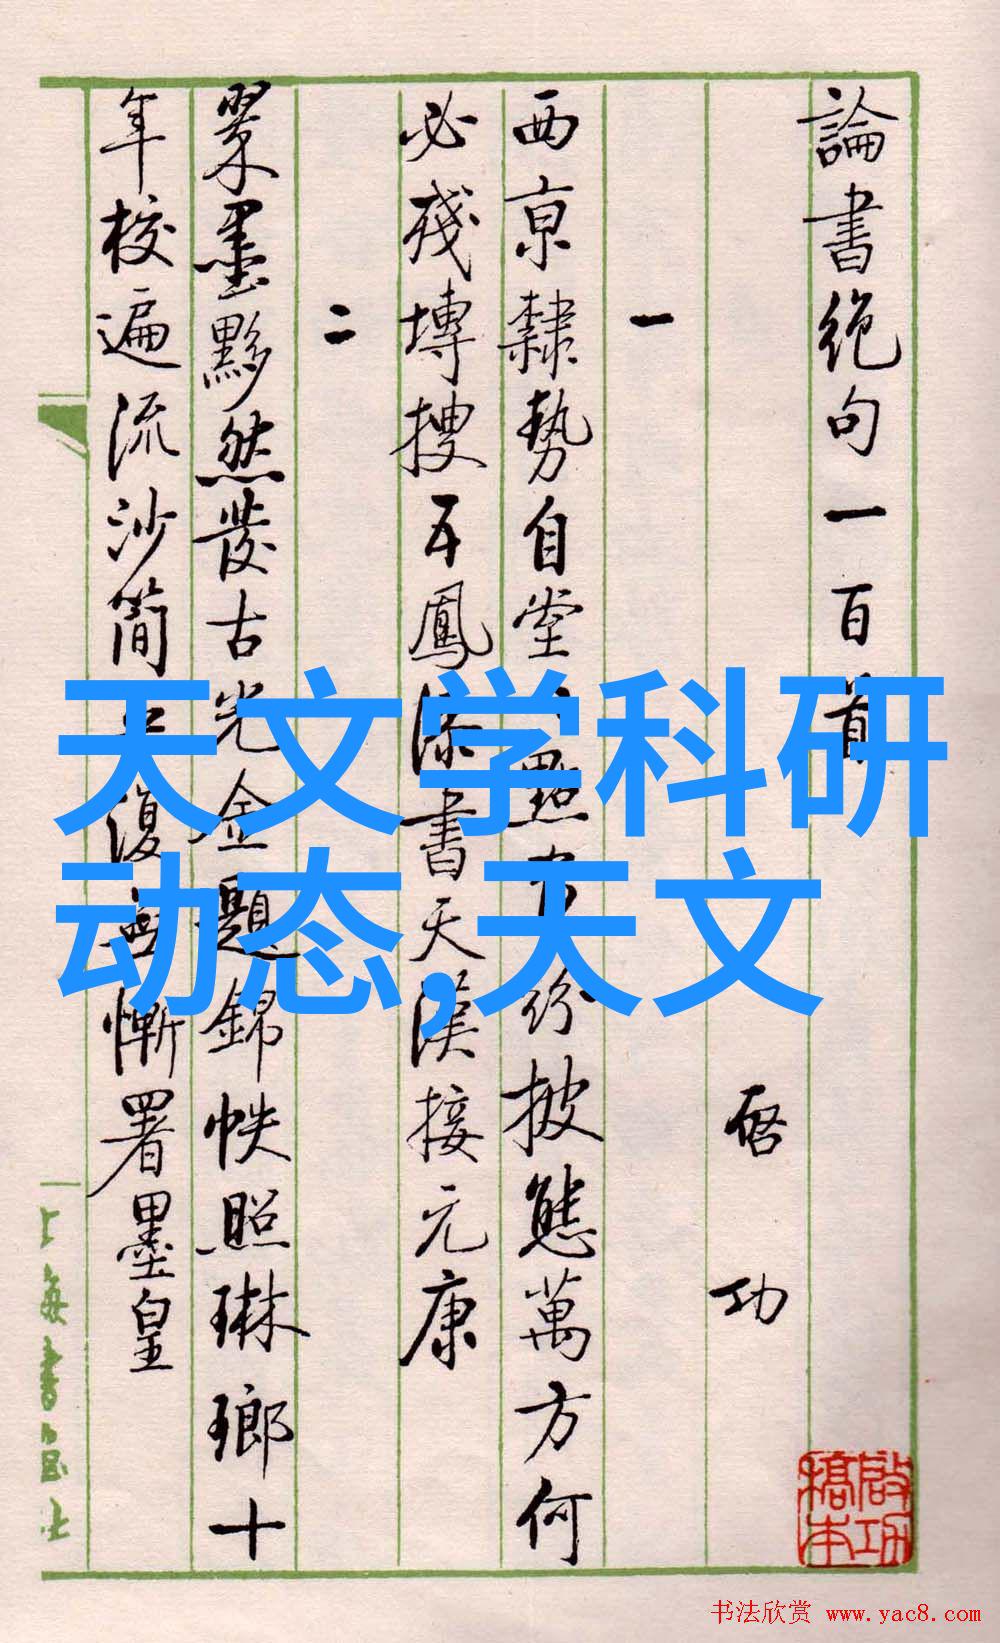 論書絶句一百首
啓功
一
西京隸勢自堂點畫紛披態萬方何
必殘塼搜五鳳漆書天漢接元康
二
翠墨黟然發古光金題錦帙照琳瑯十
年校遍流沙簡平復無慚署墨皇
上海書画社
天文学科研
动态,天文
书法欣赏 www.yac8.com